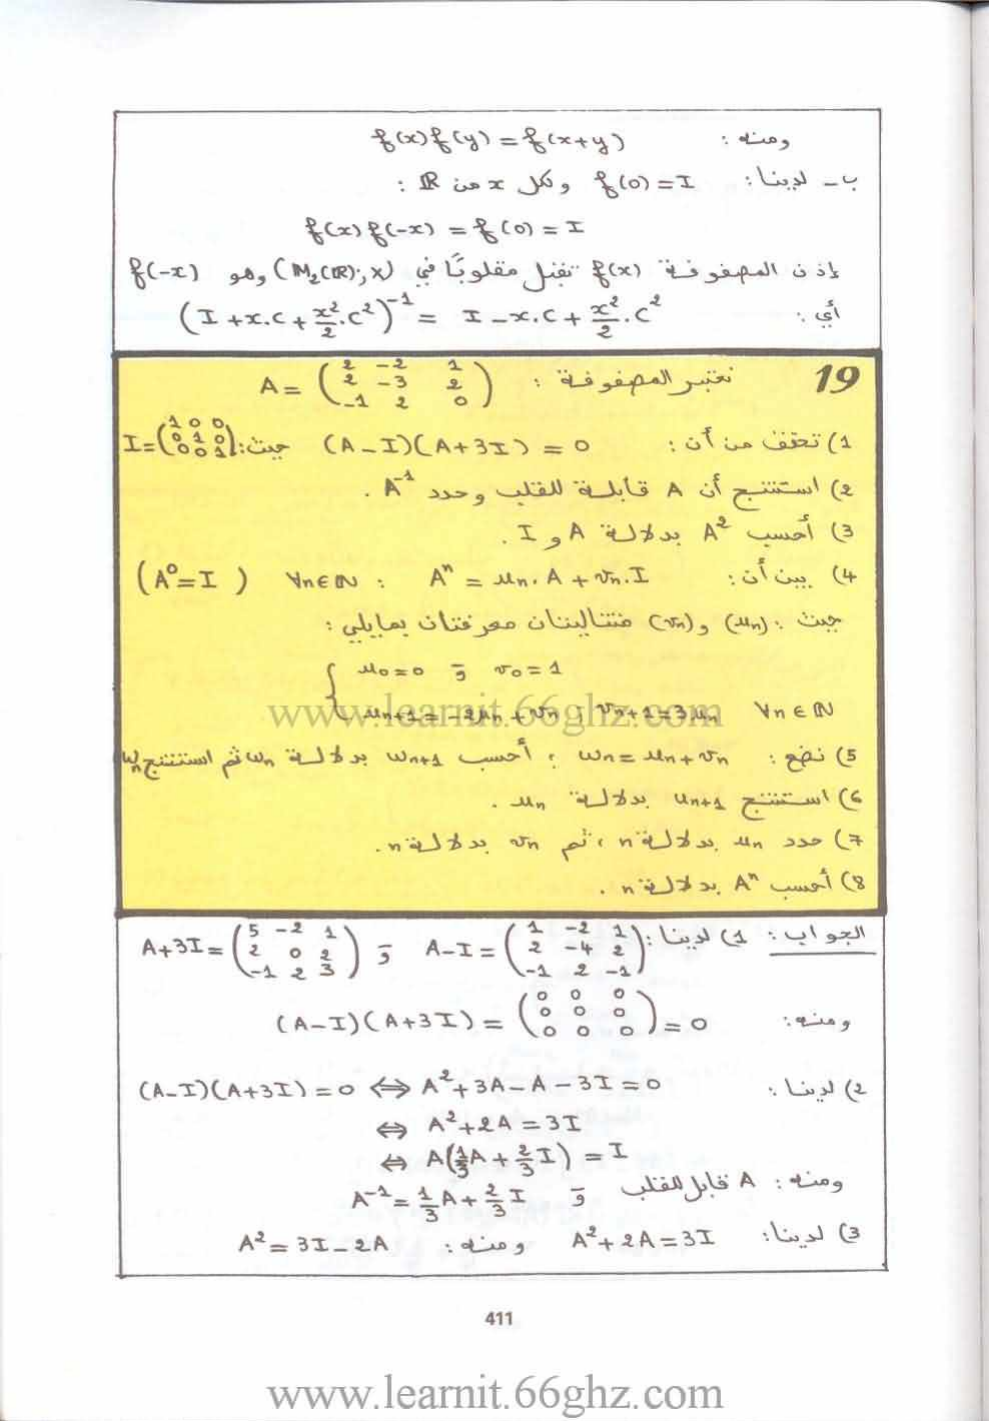 ومنه : f(x)f(y) = f(x+y)
ب - لدينا : f(0) = I ولكل x من ℝ :
f(x)f(-x) = f(0) = I
إذن المصفوفة f(x) تقبل مقلوبًا في (M₂(ℝ); ×) وهو f(-x)
أي : (I + x.C + x²/2 .C²)⁻¹ = I - x.C + x²/2 .C²
19 نعتبر المصفوفة : A = (2 -2 1 ; 2 -3 2 ; -1 2 0)
1) تحقق من أن : (A-I)(A+3I) = 0 حيث : I = (1 0 0 ; 0 1 0 ; 0 0 1)
2) استنتج أن A قابلة للقلب وحدد A⁻¹ .
3) أحسب A² بدلالة A و I .
4) بين أن : Aⁿ = uₙ.A + vₙ.I : ∀n∈ℕ (A⁰ = I)
حيث : (uₙ) و (vₙ) متتاليتان معرفتان بمايلي :
u₀ = 0 و v₀ = 1
uₙ₊₁ = -2uₙ + vₙ ; vₙ₊₁ = 3uₙ ∀n∈ℕ
www.learnit.66ghz.com
5) نضع : wₙ = uₙ + vₙ ; أحسب wₙ₊₁ بدلالة wₙ ثم استنتج wₙ
6) استنتج uₙ₊₁ بدلالة uₙ .
7) حدد uₙ بدلالة n ، ثم vₙ بدلالة n .
8) أحسب Aⁿ بدلالة n .
الجواب : 1) لدينا : A-I = (1 -2 1 ; 2 -4 2 ; -1 2 -1) و A+3I = (5 -2 1 ; 2 0 2 ; -1 2 3)
ومنه : (A-I)(A+3I) = (0 0 0 ; 0 0 0 ; 0 0 0) = 0
2) لدينا : (A-I)(A+3I) = 0 ⇔ A² + 3A - A - 3I = 0
⇔ A² + 2A = 3I
⇔ A(1/3 A + 2/3 I) = I
ومنه : A قابل للقلب و A⁻¹ = 1/3 A + 2/3 I
3) لدينا : A² + 2A = 3I ومنه : A² = 3I - 2A
411
www.learnit.66ghz.com